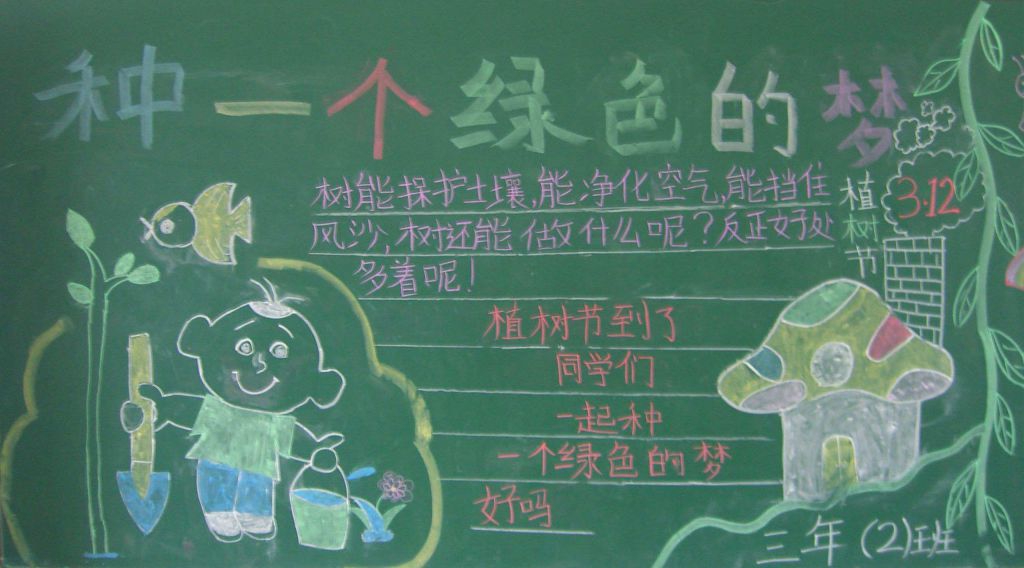 种一个绿色的梦
树能保护土壤,能净化空气,能挡住
风沙,树还能做什么呢?反正好处
多着呢!
植树节到了
同学们
一起种
一个绿色的梦
好吗
植树节
3·12
三年(2)班